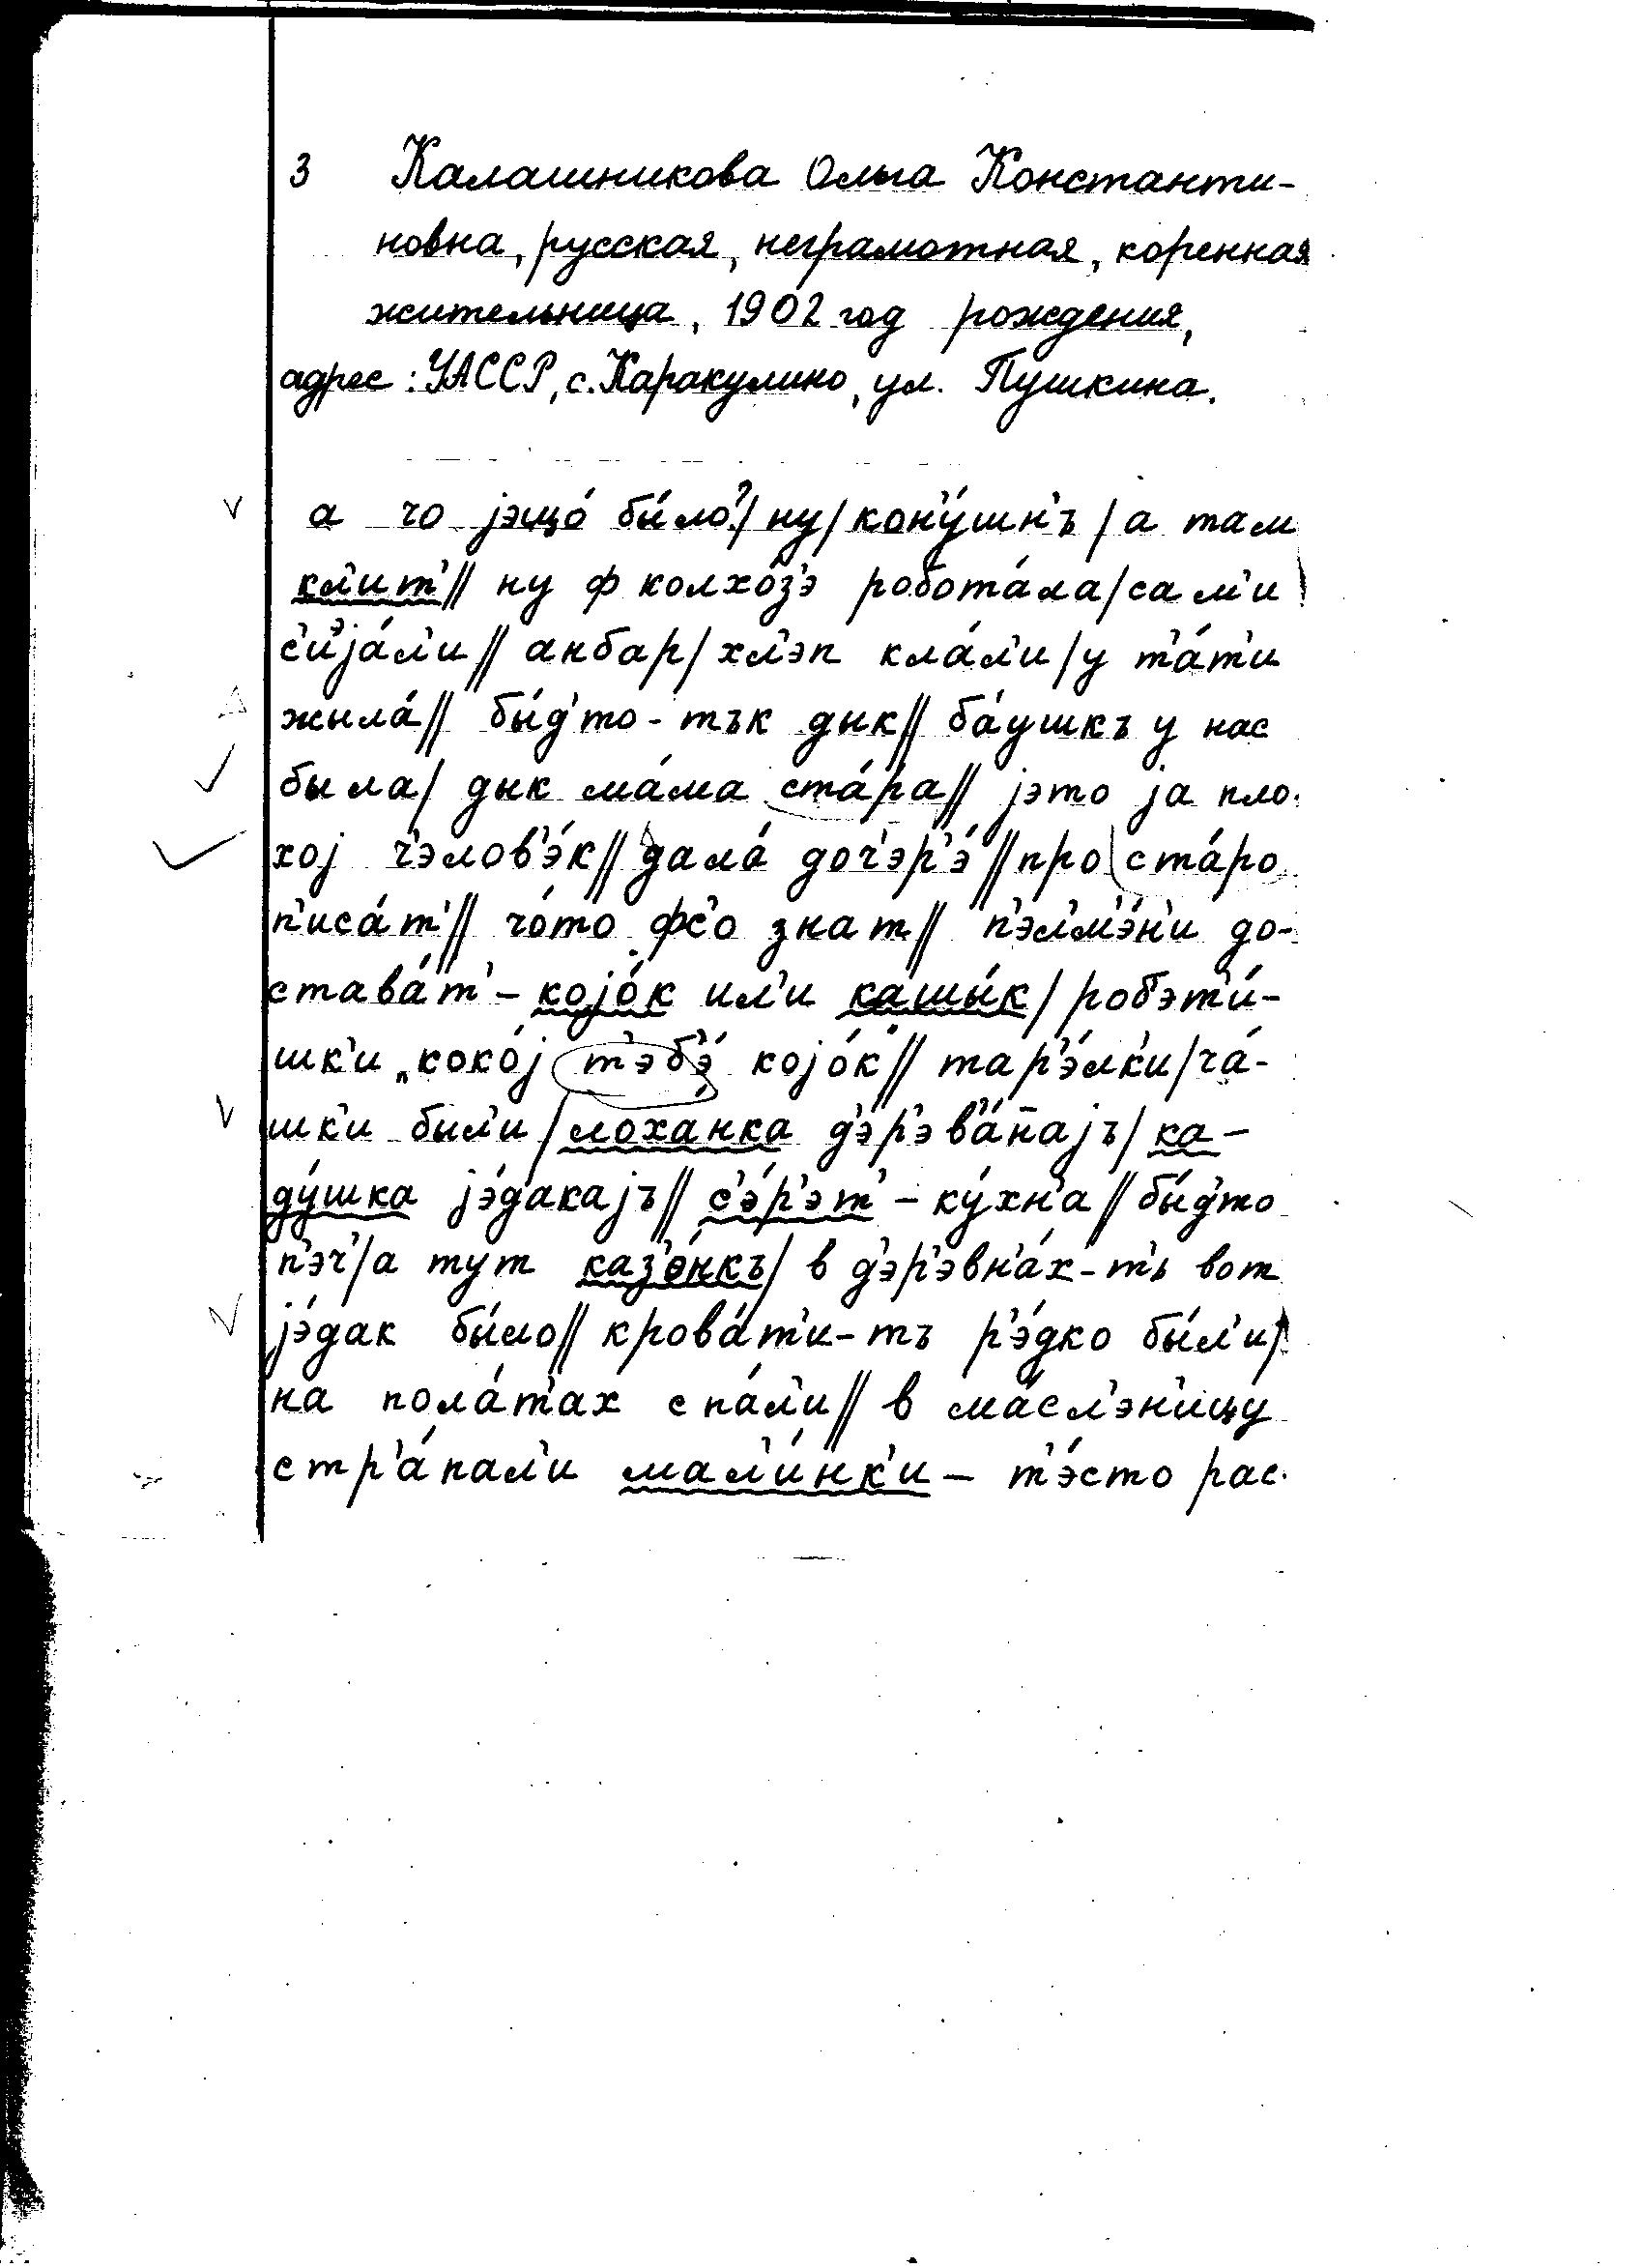 3 Калашникова Ольга Константи-
новна, русская, неграмотная, коренная
жительница, 1902 год рождения,
адрес: УАССР, с. Каракулино, ул. Пушкина.
а чо jэщо́ бы́ло?/ ну/ кон'у́шн'ъ / а там
кл'ит'// ну ф колхо́з'э робота́ла/ сам'и
с'иэjа́л'и// анбар/ хл'эп кла́л'и/ у т'а́т'и
жыла́// бы́д'то-тък дык// ба́ушкъ у нас
была/ дык ма́ма ста́ра// jэто jа пло-
хоj ч'элов'э́к// дала́ доч'эр'э́// про ста́ро
п'иса́т'// чо́то фс'о знат// п'эл'м'э́н'и до-
става́т' - коjо́к ил'и кашы́к/ робэт'и́-
шк'и „коко́j т'эб'э́ коjо́к"// тар'э́лк'и/ ча́-
шк'и был'и/ лоханка д'эр'эв'а́н̄аjъ/ ка-
ду́шка jэ́дакаjъ// с'э́р'эт' - ку́хн'а// бы́д'то
п'эч'/ а тут каз'о́нкъ/ в д'эр'эвн'а́х-т'ь вот
jэ́дак бы́ло// крова́т'и-тъ р'э́дко бы́л'и/
на пола́т'ах спа́л'и// в ма́сл'эн'ицу
стр'а́пал'и мал'и́нк'и - т'э́сто рас-